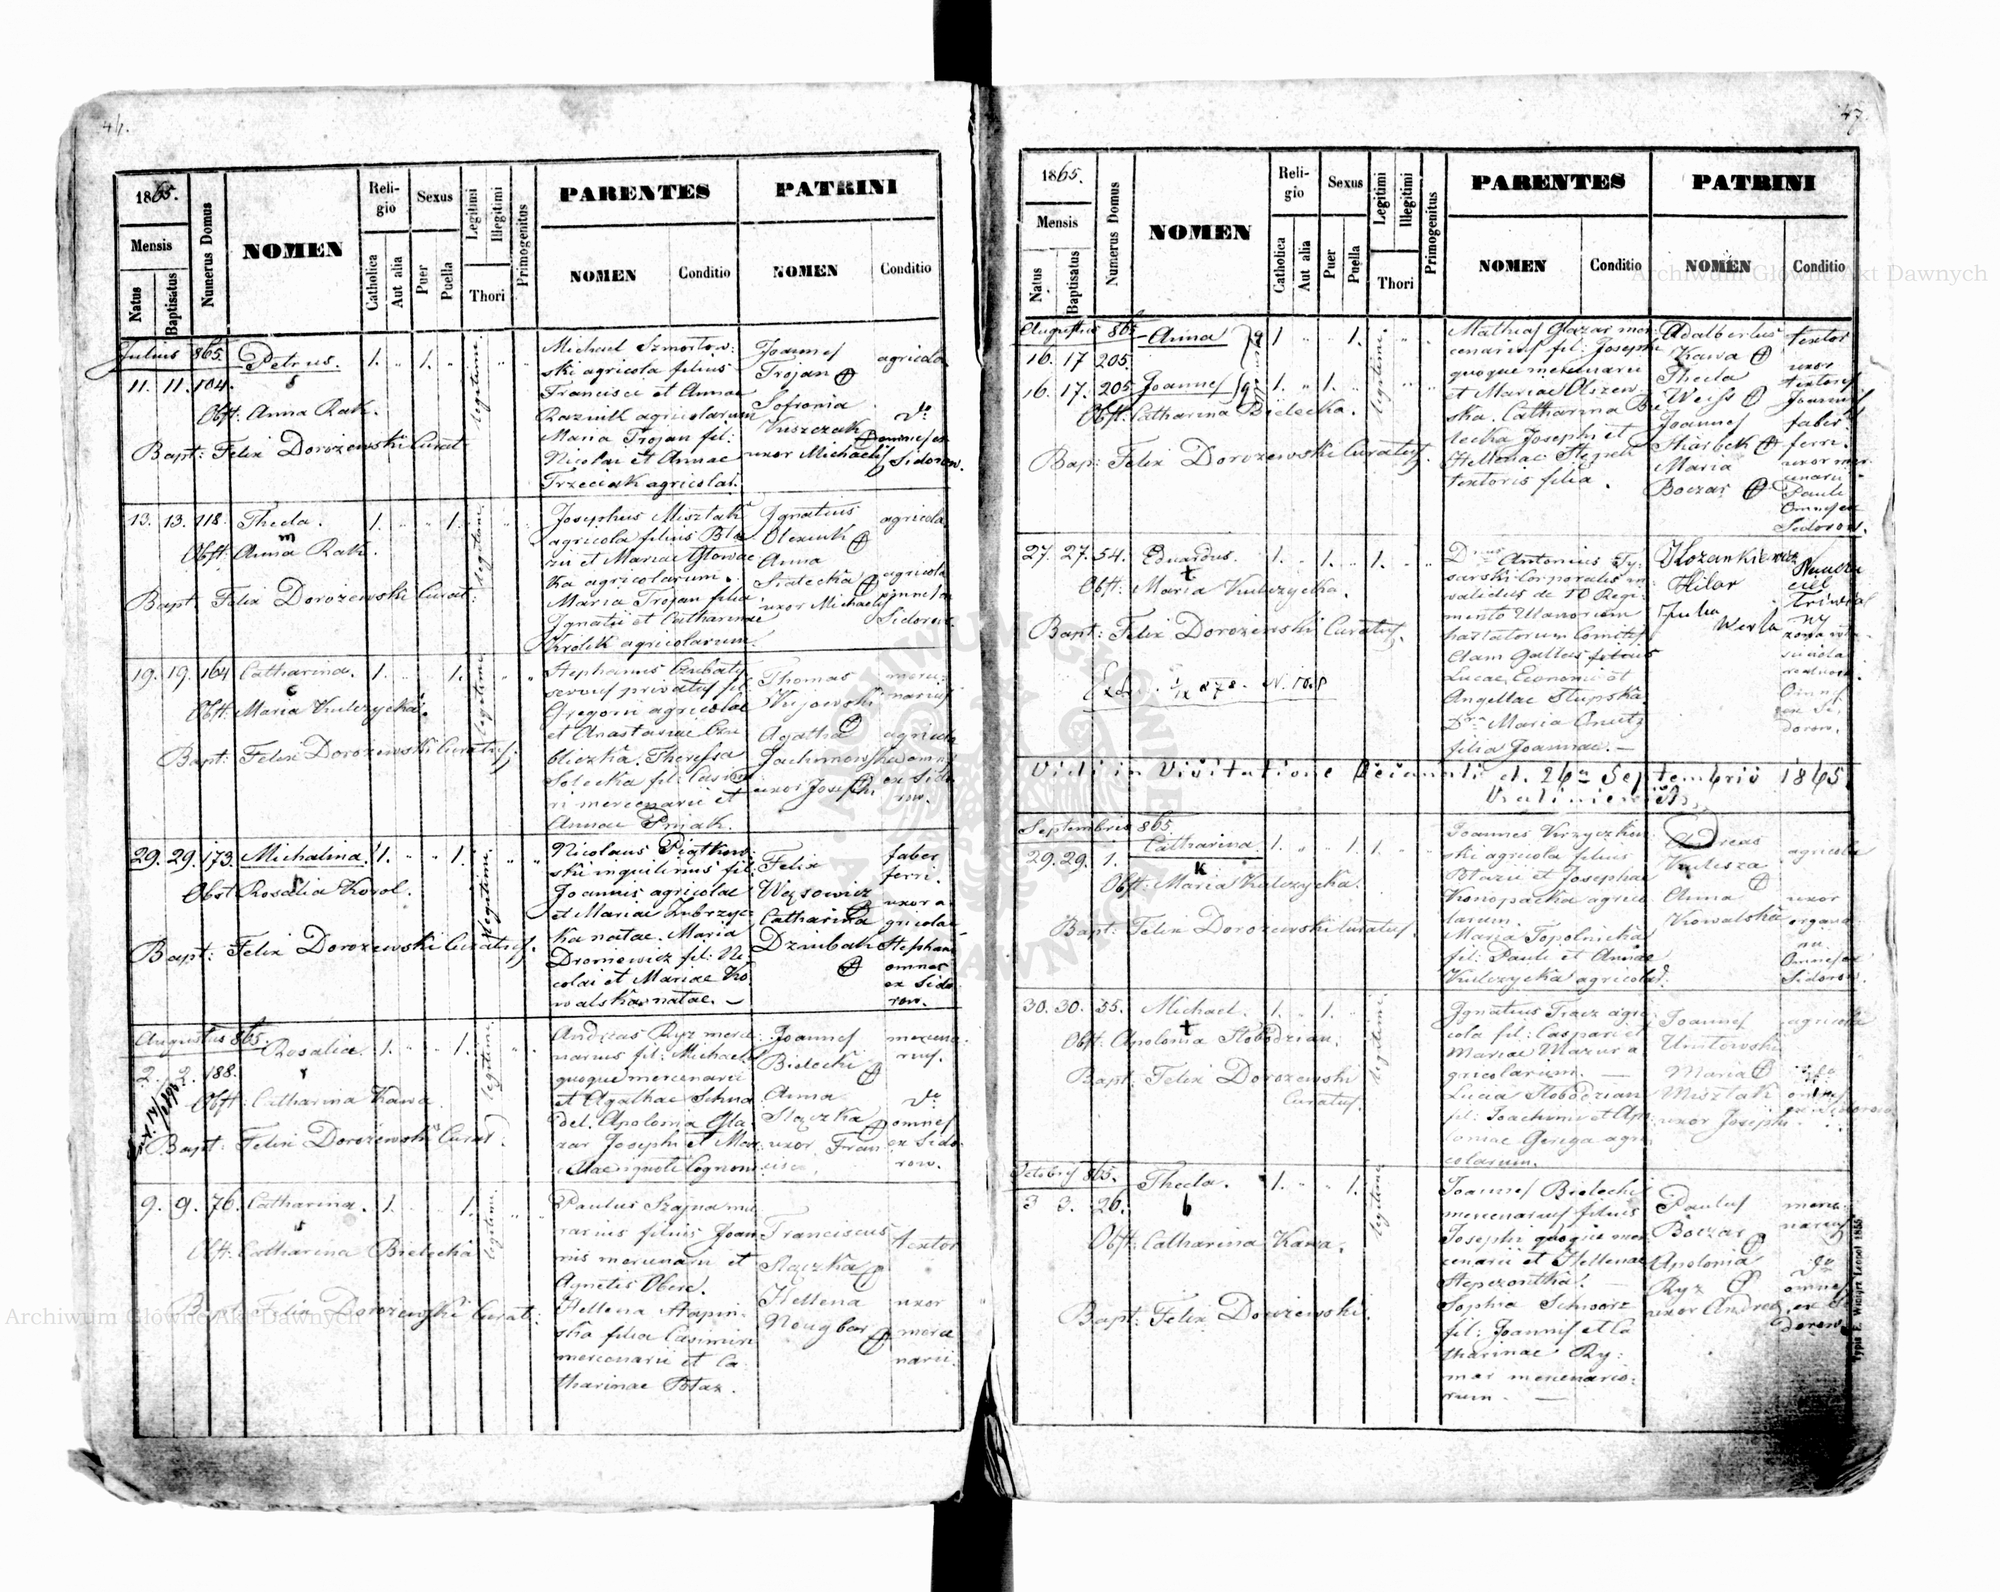 46.
1865.
Mensis
Natus
Baptisatus
Numerus Domus
NOMEN
Religio
Catholica
Aut alia
Sexus
Puer
Puella
Legitimi
Illegitimi
Thori
Primogenitus
PARENTES
NOMEN
Conditio
PATRINI
NOMEN
Conditio
Julius 865.
11. 11. 104.
Petrus.
1. 1.
legitimi
Obst. Anna Rak.
Bapt: Felix Dorożewski Curat
Michael Szmortow:
ski agricola filius
Francisci et Annae
Raznik agricolarum
Maria Trojan fil:
Nicolai et Annae
Trzeciak agricolar.
Joannes
Trojan
Sofronia
Kuszczak
uxor Michaelis
agricola
do
omnes ex
Sidorow.
13. 13. 118. Thecla. 1. 1.
legitimi
Obst. Anna Rak.
Bapt. Felix Dorożewski Curat:
Josephus Misztak
agricola filius Bla
zii et Mariae Głowac
ka agricolarum.
Maria Trojan filia
Ignatii et Catharinae
Krolik agricolarum.
Ignatius
Olexiuk
Anna
uxor Michaelis
agricola
agricola
omnes ex
Sidorow.
19. 19. 164 Catharina. 1. 1.
legitimi
Obst. Maria Kulczycka.
Bapt: Felix Dorożewski Curatus.
Stephanus Czubaty
servus privatus fil:
Gregorii agricolae
et Anastasiae
Theresa
Solecka fil: Casimi
ri mercenarii et
Annae Pniak.
Thomas
Kijowski
Agatha
Jachimowska
uxor Josephi
merce
narius
agricola
omnes
ex Sido
row.
29. 29. 173. Michalina. 1. 1.
legitimi
Obst. Rosalia Korol.
Bapt: Felix Dorożewski Curatus.
Nicolaus Piątkow
ski inquilinus fil:
Joannis agricolae
et Mariae Zubrzyc
ka natae. Maria
Dromowicz fil: Ni
colai et Mariae Ko
walska natae. —
Felix
Wąsowicz
Catharina
Dziubak
faber
ferri.
uxor a
gricolae
Stephani
omnes
ex Sido
row.
Augustus 865.
2. 2. 188.
Rosalia. 1. 1.
legitimi
Obst. Catharina Kawa
Bapt: Felix Dorożewski Curat
Andreas Ryz merce
narius fil: Michaelis
quoque mercenarii
et Agathae Schna
del. Apolonia Gla
zar Josephi et Mar
Joannes
Bielecki
Anna
Slączka
uxor Fran
cisci.
mercena
rius.
do
omnes
ex Sido
row.
9. 9. 76. Catharina. 1. 1.
legitimi
Obst. Catharina Bielecka
Bapt. Felix Dorożewski Curat:
Paulus Szajna me
rarius filius Joan
nis mercenarii et
Agnetis Oberc.
Hellena
ska filia Casimiri
mercenarii et Ca
tharinae Potaz.
Franciscus
Slączka
Hellena
textor
uxor
merce
narii.
47.
1865.
Mensis
Natus
Baptisatus
Numerus Domus
NOMEN
Religio
Catholica
Aut alia
Sexus
Puer
Puella
Legitimi
Illegitimi
Thori
Primogenitus
PARENTES
NOMEN
Conditio
PATRINI
NOMEN
Conditio
Augustus 865.
Anna
16. 17 205.
16. 17. 205. Joannes
gemelli
legitimi
Obst: Catharina Bielecka.
Bap: Felix Dorożewski Curatus.
Mathias Glazar mer
cenarius fil: Josephi
quoque mercenarii
et Mariae Olszew
ska. Catharina Bie
lecka Josephi et
Hellenae
textoris filia.
Adalbertus
Kawa
Thecla
Weiss
Joannes
Skarbek
Maria
Boczar
textor
uxor
textoris
Joannis
faber
ferri.
uxor mer
cenarii
Pauli
Omnes ex
Sidorow.
27. 27. 54. Eduardus. 1. 1. 1.
Obst: Maria Kulczycka.
Bapt: Felix Dorożewski Curatus.
Antonius Ty
sarski Corporalis in
validus de 10 Regi
mento Ulanorum
hastatorum Comitis
Clam Gallas filius
Lucae, Economi et
Angellae Słupska.
Maria
filia Joannae. —
Kozankiewicz
Hilar
Julia
Werla
Nauczy
ciel
trivial
ny
Omnes
ex Si
dorow.
Vidi in Visitatione Decanali d. 26ta Septembris 1865.
Septembris 865.
29. 29. 1. Catharina 1. 1. 1.
Obst: Maria Kulczycka.
Bapt: Felix Dorożewski Curatus.
Joannes Krzyczkow
ski agricola filius
Blazii et Josephae
Konopacka agrico
larum.
Maria Topolnicka
fil: Pauli et Annae
Kulczycka agricolar.
Andreas
Kulesza
Anna
Kowalska
agricola
uxor
organa
rii.
Omnes ex
Sidorow.
30. 30. 55. Michael. 1. 1.
legitimi
Obst: Apolonia Słobodzian.
Bapt: Felix Dorożewski
Curatus.
Ignatius Tracz agri
cola fil: Caspari et
Mariae Mazur a
gricolarum. —
Lucia Słobodzian
fil: Joachimi et Apo
loniae Geriga agri
colarum.
Joannes
Urutowski
Maria
Misztak
uxor Josephi.
agricola
omnes
ex Sidorow
Octobris 865.
3 3. 26.
Thecla. 1. 1.
legitimi
Obst: Catharina Kawa.
Bapt: Felix Dorożewski.
Joannes Bielecki
mercenarius filius
Josephi quoque mer
cenarii et Hellenae
Sophia Schwarz
fil: Joannis et Ca
tharinae Ry:
mar mercenario:
rum. —
Paulus
Boczar
Apolonia
Ryz
uxor Andreae
merce
narius
do
omnes
ex Si
dorow.
Typis E. Winiarz Leopol 1855
Archiwum Główne Akt Dawnych
Archiwum Główne Akt Dawnych
ARCHIWUM GŁÓWNE AKT DAWNYCH